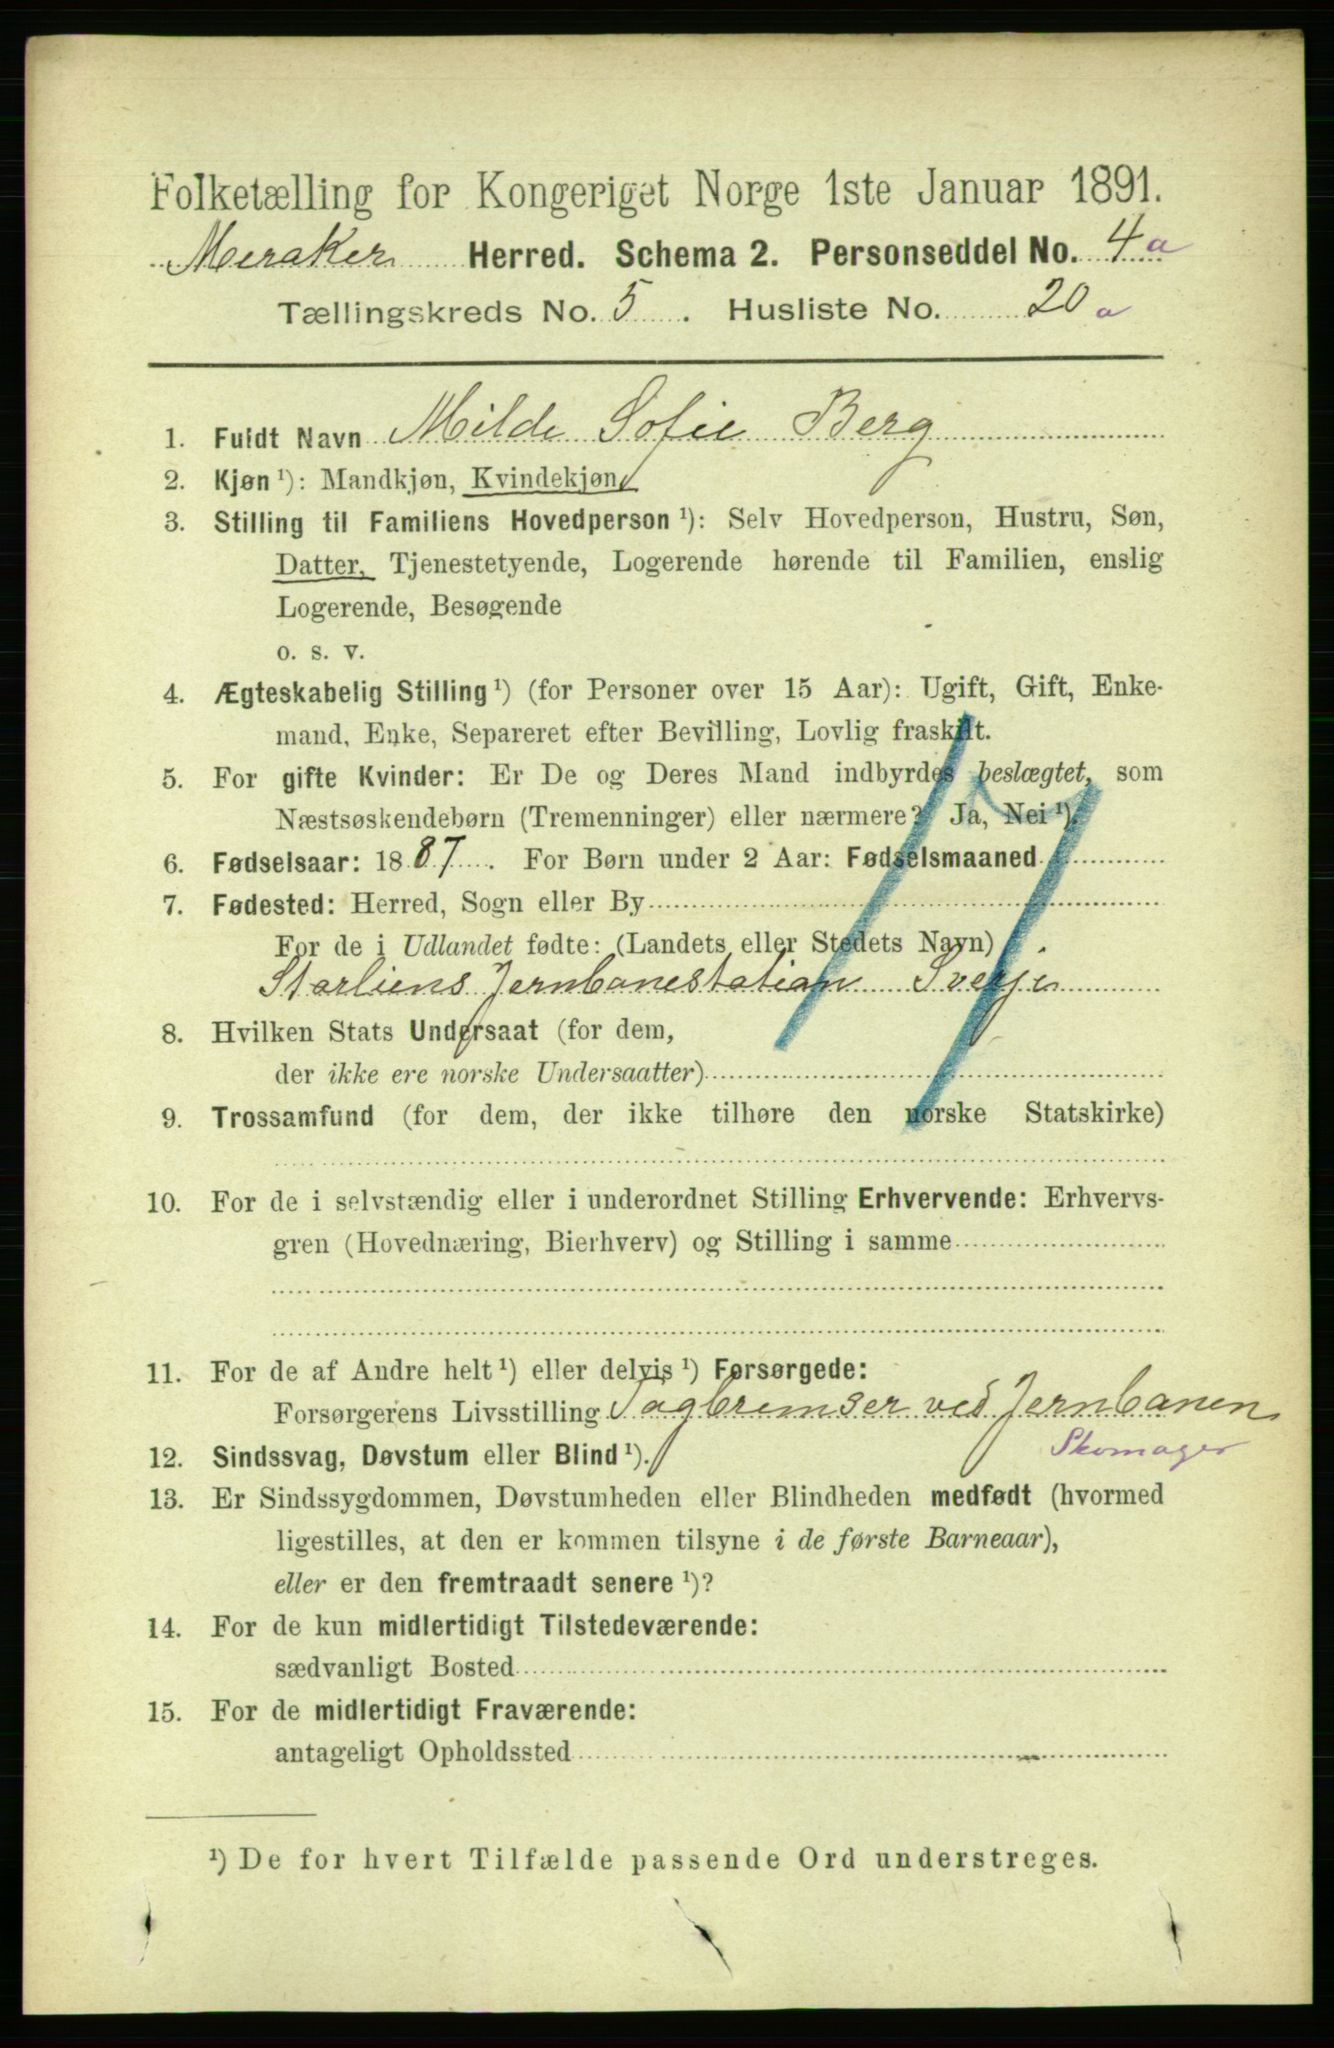 Folketælling for Kongeriget Norge 1ste Januar 1891.
Meraker Herred. Schema 2. Personseddel No. 4a
Tællingskreds No. 5. Husliste No. 20a
1. Fuldt Navn Milde Sofie Berg
2. Kjøn ¹): Mandkjøn, Kvindekjøn
3. Stilling til Familiens Hovedperson ¹): Selv Hovedperson, Hustru, Søn,
Datter, Tjenestetyende, Logerende hørende til Familien, enslig
Logerende, Besøgende
o. s. v.
4. Ægteskabelig Stilling ¹) (for Personer over 15 Aar): Ugift, Gift, Enke-
mand, Enke, Separeret efter Bevilling, Lovlig fraskilt.
5. For gifte Kvinder: Er De og Deres Mand indbyrdes beslægtet, som
Næstsøskendebørn (Tremenninger) eller nærmere? Ja, Nei ¹).
6. Fødselsaar: 1887. For Børn under 2 Aar: Fødselsmaaned
7. Fødested: Herred, Sogn eller By
For de i Udlandet fødte: (Landets eller Stedets Navn)
Storliens Jernbanestation Sverje
8. Hvilken Stats Undersaat (for dem,
der ikke ere norske Undersaatter)
9. Trossamfund (for dem, der ikke tilhøre den norske Statskirke)
10. For de i selvstændig eller i underordnet Stilling Erhvervende: Erhvervs-
gren (Hovednæring, Bierhverv) og Stilling i samme
11. For de af Andre helt ¹) eller delvis ¹) Forsørgede:
Forsørgerens Livsstilling Togbremser ved Jernbanen
Skomager
12. Sindssvag, Døvstum eller Blind ¹).
13. Er Sindssygdommen, Døvstumheden eller Blindheden medfødt (hvormed
ligestilles, at den er kommen tilsyne i de første Barneaar),
eller er den fremtraadt senere ¹)?
14. For de kun midlertidigt Tilstedeværende:
sædvanligt Bosted
15. For de midlertidigt Fraværende:
antageligt Opholdssted
¹) De for hvert Tilfælde passende Ord understreges.